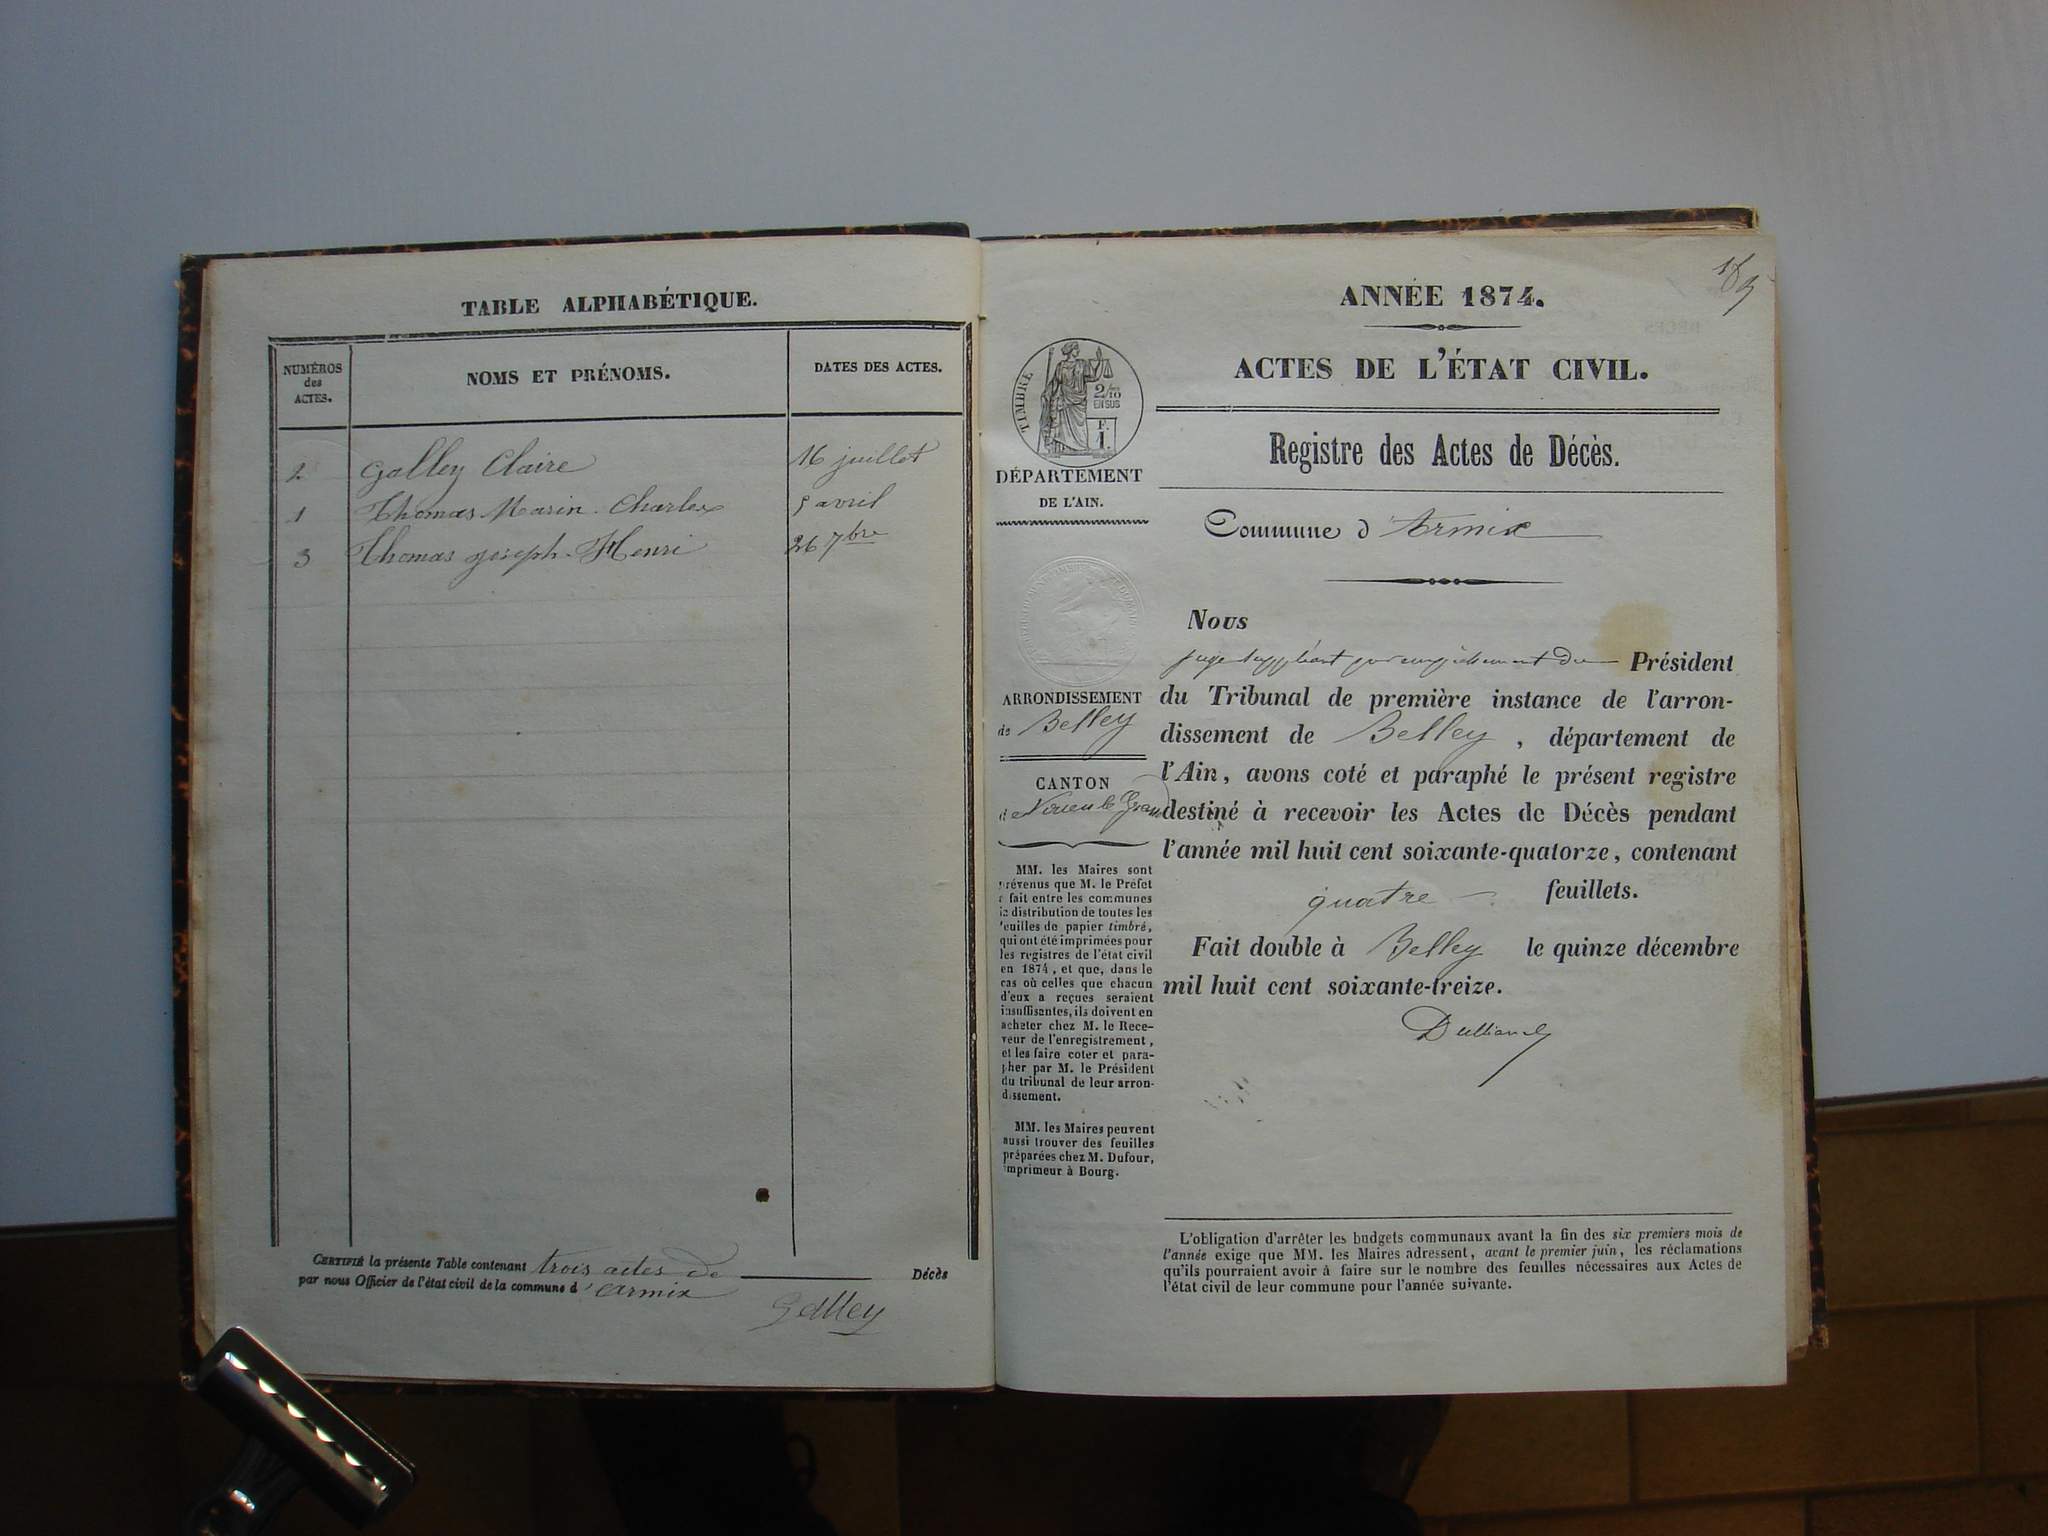 TABLE ALPHABÉTIQUE.
NUMÉROS
des
ACTES.
NOMS ET PRÉNOMS.
DATES DES ACTES.
2 Galley Claire 16 juillet
1 Thomas Marin-Charles 5 avril
3 Thomas Joseph-Henri 26 7bre
CERTIFIÉ la présente Table contenant trois actes de Décès
par nous Officier de l'état civil de la commune d'Armix
Galley
ANNÉE 1874.
ACTES DE L'ÉTAT CIVIL.
Registre des Actes de Décès.
Commune d'Armix
TIMBRE
2/10
EN SUS
F.
1.
DÉPARTEMENT
DE L'AIN.
ARRONDISSEMENT
de Belley
CANTON
de Virieu le Grand
MM. les Maires sont
prévenus que M. le Préfet
a fait entre les communes
la distribution de toutes les
feuilles de papier timbré,
qui ont été imprimées pour
les registres de l'état civil
en 1874, et que, dans le
cas où celles que chacun
d'eux a reçues seraient
insuffisantes, ils doivent en
acheter chez M. le Rece-
veur de l'enregistrement,
et les faire coter et para-
pher par M. le Président
du tribunal de leur arron-
dissement.
MM. les Maires peuvent
aussi trouver des feuilles
préparées chez M. Dufour,
imprimeur à Bourg.
Nous
juge suppléant par empêchement du Président
du Tribunal de première instance de l'arron-
dissement de Belley, département de
l'Ain, avons coté et paraphé le présent registre
destiné à recevoir les Actes de Décès pendant
l'année mil huit cent soixante-quatorze, contenant
quatre feuillets.
Fait double à Belley le quinze décembre
mil huit cent soixante-treize.
L'obligation d'arrêter les budgets communaux avant la fin des six premiers mois de
l'année exige que MM. les Maires adressent, avant le premier juin, les réclamations
qu'ils pourraient avoir à faire sur le nombre des feuilles nécessaires aux Actes de
l'état civil de leur commune pour l'année suivante.